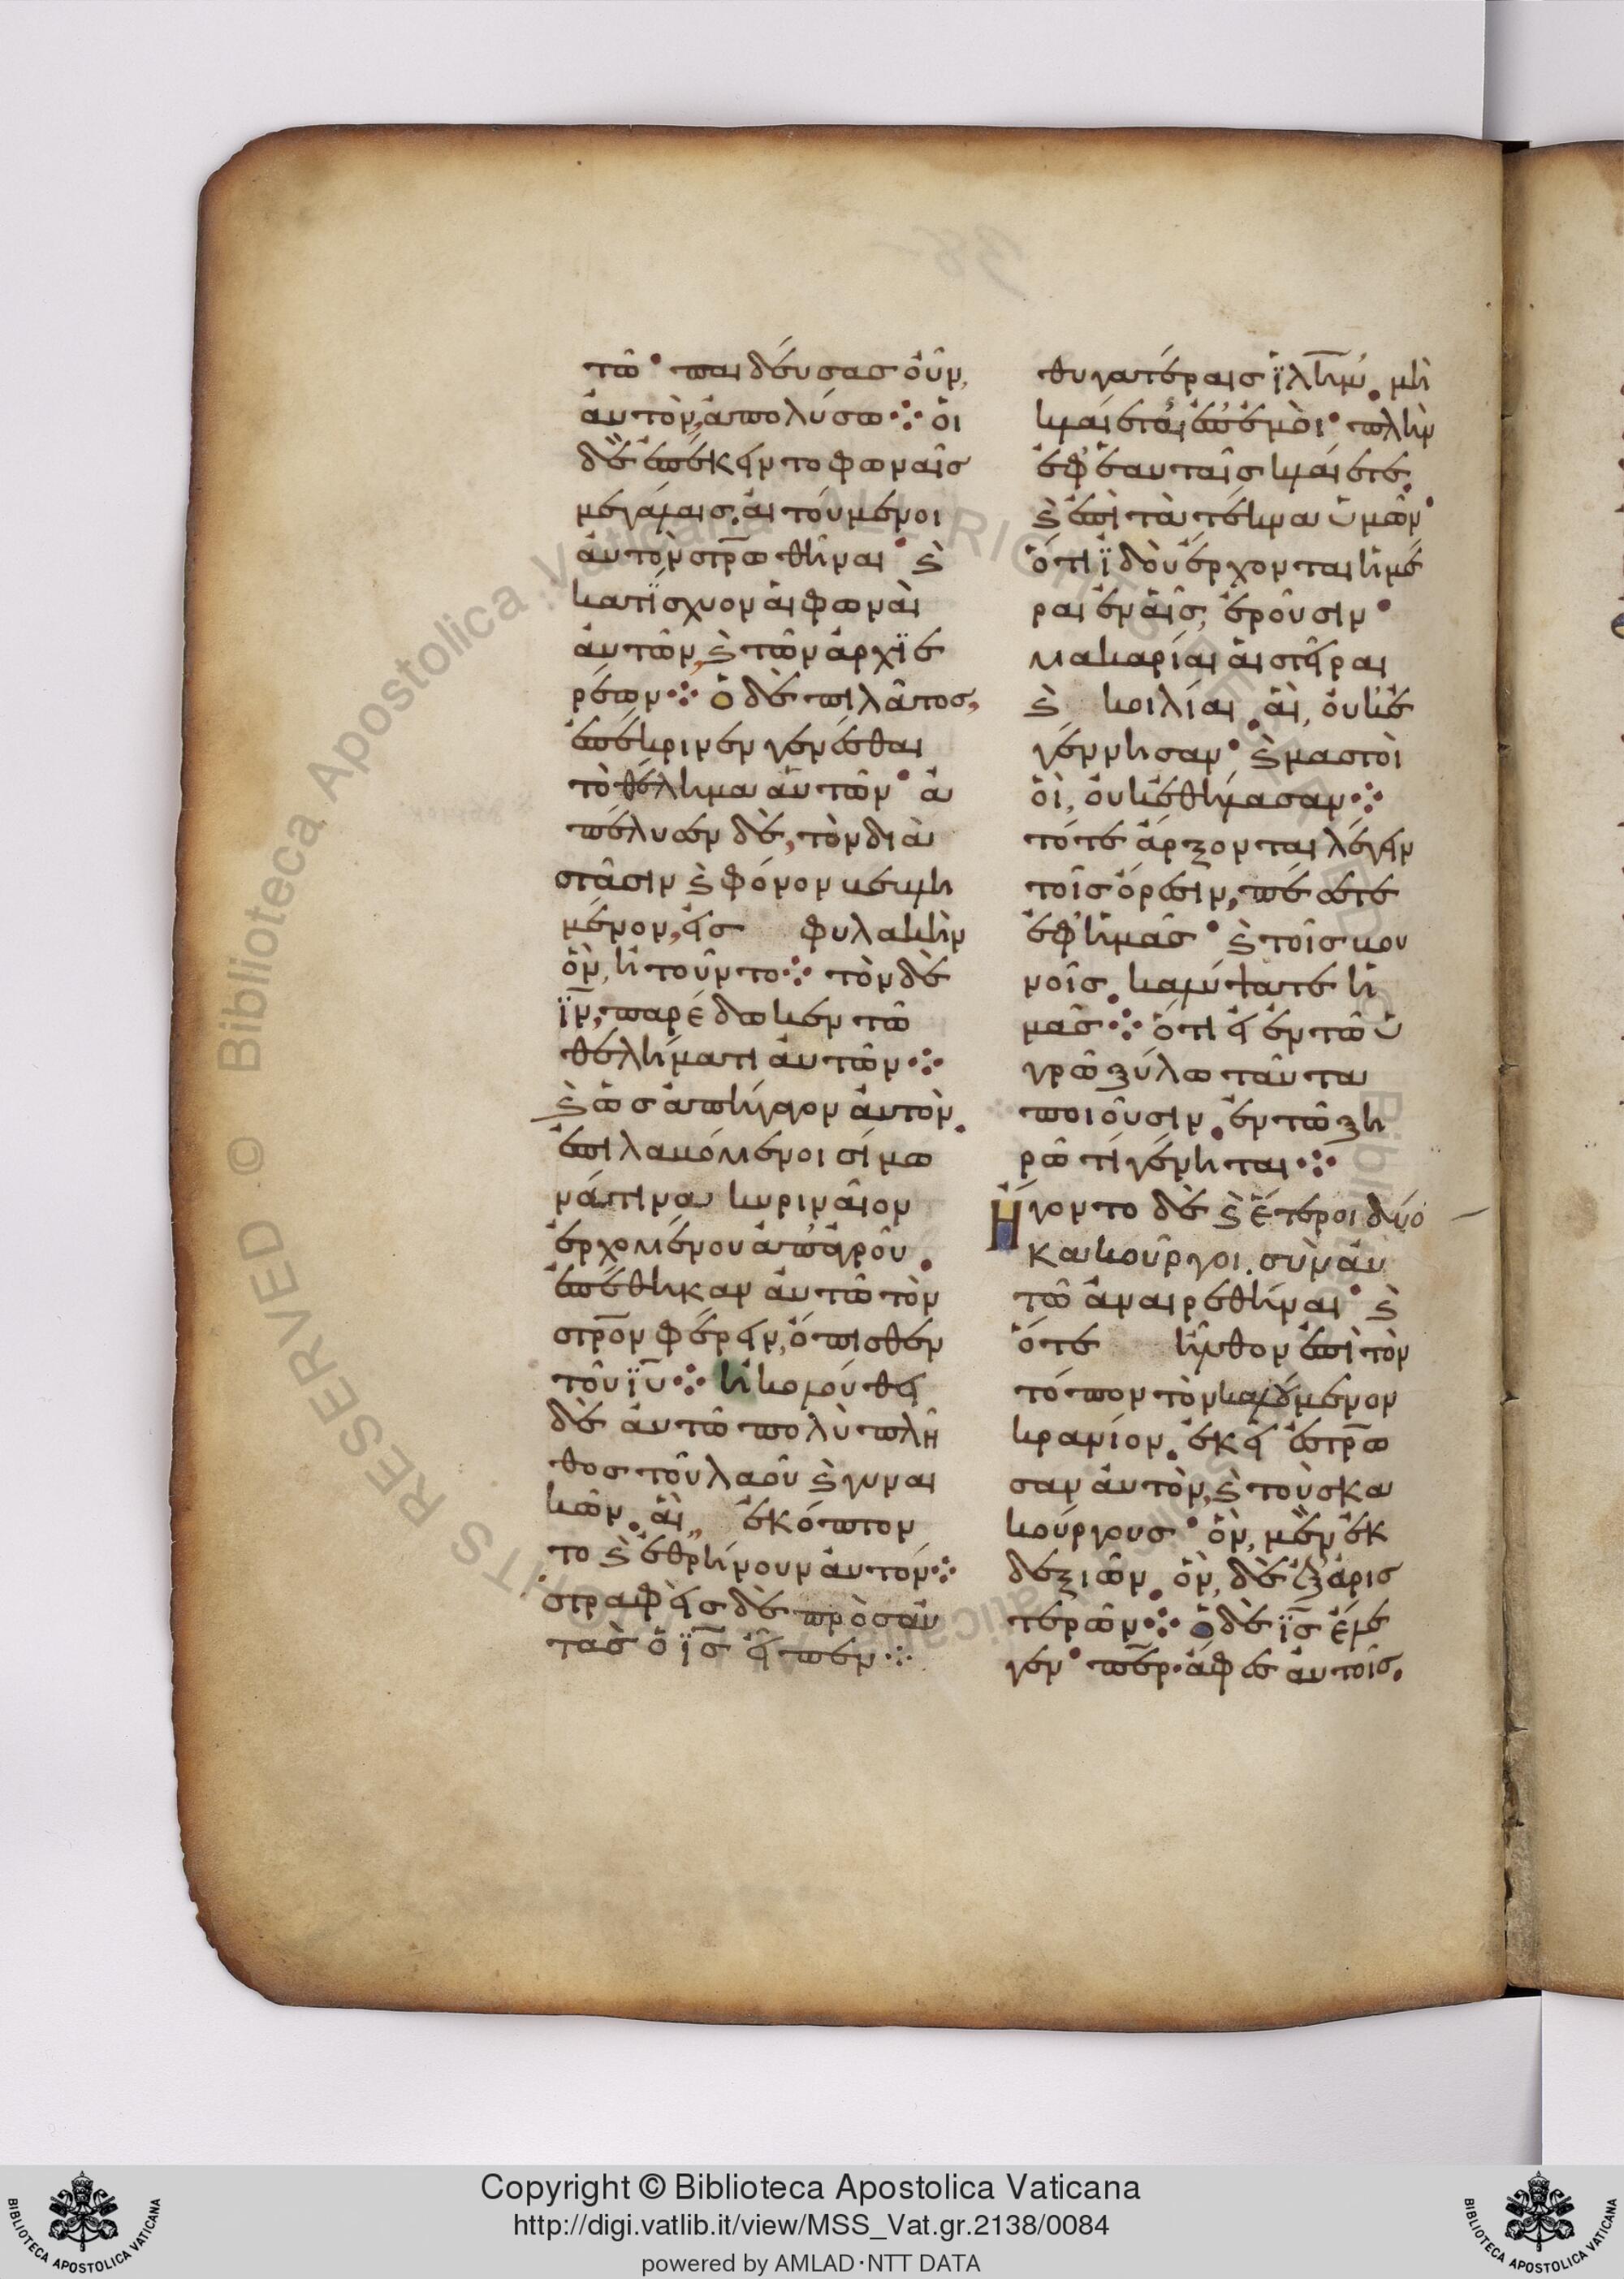 τῶ· παιδεύσας οὖν,
ἀυτὸν, ἀπολύσω⁘ ὁι
δὲ ἐπέκειντο φωναῖς
μεγάλαις. ἀιτούμενοι
ἀυτὸν στρ̅ωθῆναι· ϗ
κατΐσχυον ἁι φωναὶ
ἀυτῶν, ϗ τῶν ἀρχϊε
ρέων⁘ ὁ δὲ πιλᾶτος,
ἐπέκρινεν γενέσθαι
τὸ θέλημα ἀυτῶν· ἀ
πέλυσεν δὲ, τὸν διὰ
στᾶσιν ϗ φόνον βεβλη
μένον, εἰς φυλακὴν
ὃν, ἠτοῦντο⁘ τὸν δὲ
ϊ̅ν, παρέδωκεν τῶ
θελήματι ἀυτῶν⁘
ϗ ὡς ἀπήγαγον ἀυτὸν.
ἐπιλαβόμενοι σίμω
νά τινα κυριναῖον
ἐρχομένου ἀπ' ἀγροῦ.
ἐπέθηκαν ἀυτῶ τὸν
στρ̅ον φέρειν, ὄπισθεν
τοῦ ϊ̅υ⁘ ἠκολούθει
δὲ ἀυτῶ πολὺ πλῆ
θος τοῦ λαοῦ ϗ γυναι
κῶν. ἃι, ἐκόπτον
το ϗ ἐθρήνουν ἀυτόν⁘
στραφεὶς δὲ πρὸς ἀυ
τὰς ὁ ϊ̅ς εἶπεν⁘
θυγατέραις ϊ̅λ̅η̅μ̅. μὴ
κλαίετε ἐπ' ἐμὸι· πλὴν
ἐφ' ἑαυταῖς κλαίετε.
ϗ ἐπὶ τὰ τέκνα ὑμῶν·
ὅτι ϊδοὺ ἔρχονται ἡμέ
ραι ἐν ἁῖς, ἐροῦσιν·
μακαρίαι ἁι στεῖραι
ϗ κοιλίαι. ἃι, ὀυκ ἐ
γέννησαν· ϗ μαστοὶ
ὃι, ὀυκ ἐθήλασαν⁘
τότε ἄρξονται λέγειν
τοῖς ὄρεσιν, πέσετε
ἐφ' ἡμᾶς· ϗ τοῖς βου
νοῖς. καλύψατε ἡ
μᾶς⁘ ὅτι εἰ ἐν τῶ ὑ
γρῶ ξύλω ταῦτα
ποιοῦσιν. ἐν τῶ ξη
ρῶ τί γένηται⁘
Ἤγοντο δὲ ϗ ἕτεροι δύο
κακοῦργοι. σὺν ἀυ
τῶ ἀναιρεθῆναι· ϗ
ὅτε ἦλθον ἐπὶ τὸν
τόπον τὸν καλούμενον
κρανίον. ἐκεῖ ἐστρ̅ω
σαν ἀυτὸν, ϗ τοὺς κα
κούργους· ὃν, μὲν ἐκ
δεξιῶν. ὃν, δὲ ἐξ ἀρισ
τερῶν⁘ ὁ δὲ ϊ̅ς ἔλε
γεν· π̅ε̅ρ· ἄφες ἀυτοῖς.
Copyright © Biblioteca Apostolica Vaticana
http://digi.vatlib.it/view/MSS_Vat.gr.2138/0084
powered by AMLAD·NTT DATA